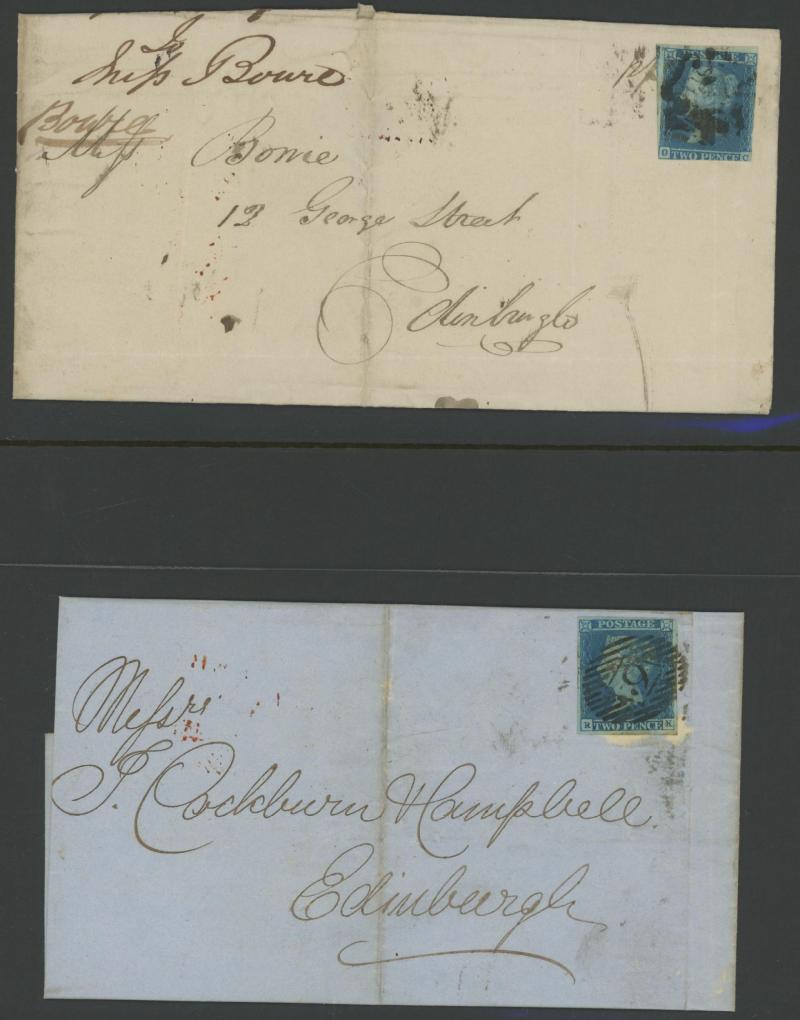 To
Miss Bowie
Bowie
Miss Bowie
13 George Street
Edinburgh
POSTAGE
O TWO PENCE C
Messrs
J. Cockburn & Campbell
Edinburgh
POSTAGE
TWO PENCE K